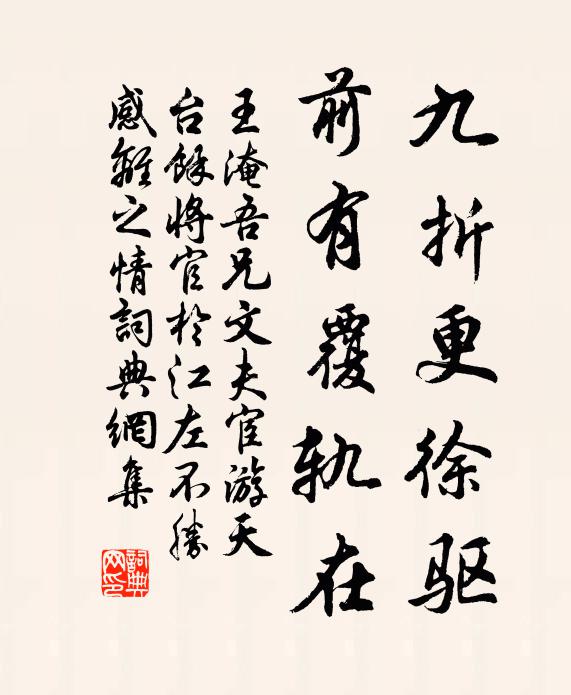 九折更徐驱
前有覆轨在
王淹吾兄文夫宦游天
台餘将官於江左不勝
感離之情詞典網集
詞典網印